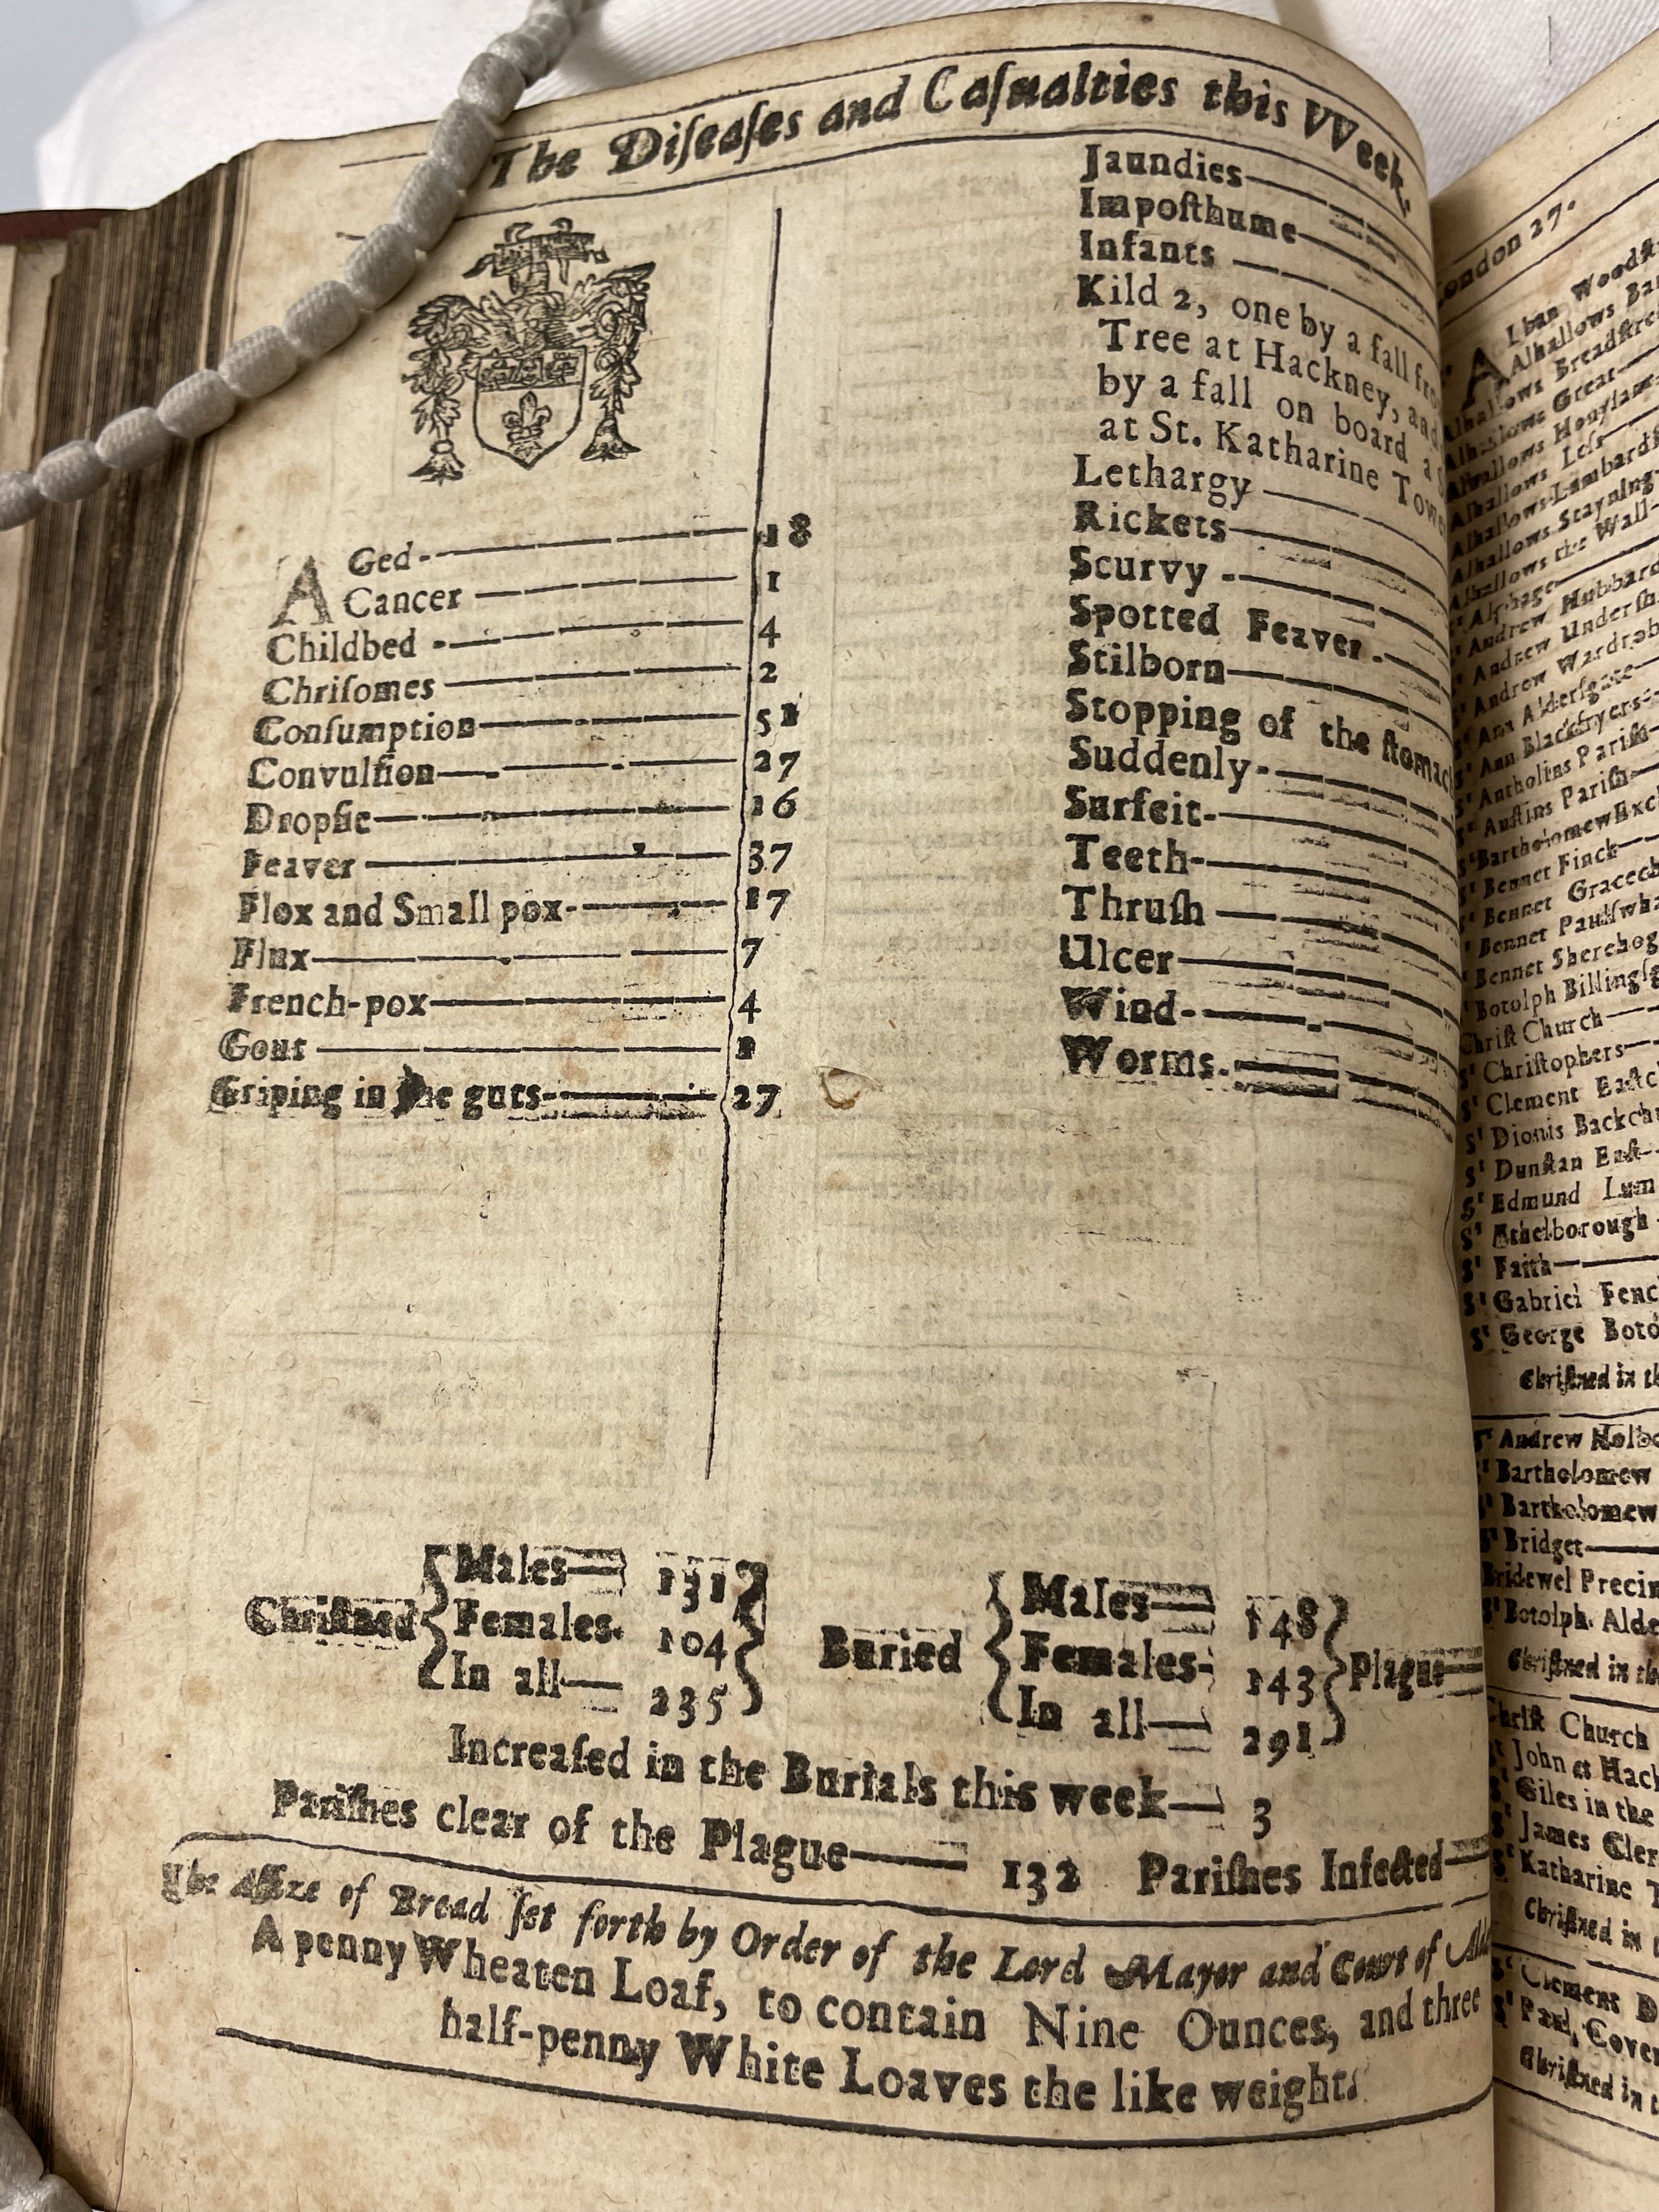 The Diſeaſes and Caſualties this VVeek.
AGed 18
Cancer 1
Childbed 4
Chriſomes 2
Conſumption 51
Convulſion 27
Dropſie 16
Feaver 37
Flox and Small pox 17
Flux 7
French-pox 4
Gout 1
Griping in the guts 27
Jaundies
Impoſthume
Infants
Kild 2, one by a fall
Tree at Hackney,
by a fall on board a
at St. Katharine
Lethargy
Rickets
Scurvy
Spotted Feaver
Stilborn
Stopping of the
Suddenly
Surfeit
Teeth
Thruſh
Ulcer
Wind
Worms
Chriſtned
Males 131
Females 104
In all 235
Buried
Males 148
Females 143
In all 291
Plague
Increaſed in the Burials this week 3
Pariſhes clear of the Plague 132 Pariſhes Infected
The Aſſize of Bread ſet forth by Order of the Lord Mayor and Court of
A penny Wheaten Loaf, to contain Nine Ounces, and three
half-penny White Loaves the like weight.
27.
Alban
Alhallows
Alhallows
Alhallows Great
Alhallows
Alhallows Leſs
Alhallows
Alhallows Stayning
Alhallows the Wall
Sᵗ Alphage
Sᵗ Andrew Hubbard
Sᵗ Andrew
Sᵗ Andrew
Sᵗ Ann Alderſgate
Sᵗ Ann Blackfryers
Sᵗ Antholins Pariſh
Sᵗ Auſtins Pariſh
Sᵗ Bartholomew
Sᵗ Bennet Finck
Sᵗ Bennet
Sᵗ Bennet
Sᵗ Bennet
Sᵗ Botolph
Chriſt Church
Sᵗ Chriſtophers
Sᵗ Clement
Sᵗ Dionis
Sᵗ Dunſtan Eaſt
Sᵗ Edmund
Sᵗ Ethelborough
Sᵗ Faith
Sᵗ Gabriel
Sᵗ George
Chriſtned in
Sᵗ Andrew
Sᵗ Bartholomew
Sᵗ Bartholomew
Sᵗ Bridget
Bridewel
Sᵗ Botolph
Chriſtned in
Chriſt Church
Sᵗ John at
Sᵗ Giles in the
Sᵗ James
Sᵗ Katharine
Chriſtned in
Sᵗ Clement
Sᵗ Paul,
Chriſtned in